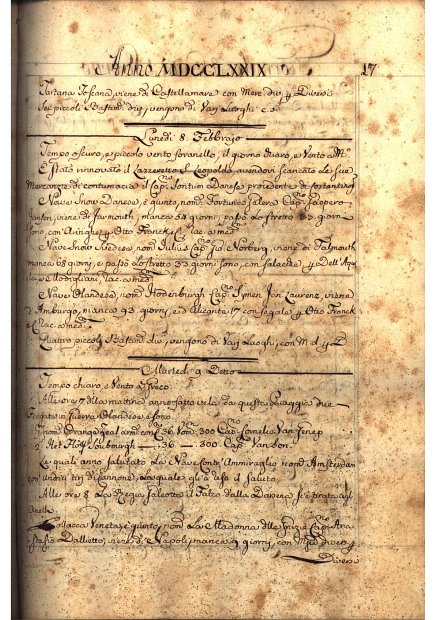 Anno MDCCLXXIX 17
Tartana Toscana, viene di Castellamare con Merc. div. p Diversi
Sei piccoli Bastim. div., vengono di Varj Luoghi c. s.
Lunedi 8. Febbrajo
Tempo oscuro, e piccolo vento fo il giorno chiaro, e Vento a
È stato rinnovato il Lazzeretto S. Leopoldo, avendovi scaricato le sue
Mercanzie di contumacia il Cap. Danese
Nave Snow Danese, è giunto, nom. Fortunes Cap. Jaspero
viene di Jarmouth, manca 52 giorni, passò lo stretto giorni
sono, con Aringhe p Otto Franck e C. lac. a med.
Nave Snow Svedese nom. Julius Cap. Gio. Norberg, viene di Falmouth
manca 68 giorni, e passò lo stretto 33 giorni sono, con Salacche p Dell'
e Modigliani, lac. a med.
Nave Olandese, nom. Cap. Symen Jan Laurenz, viene
Amburgo, manca 93 giorni, e d'Alicante 17 con segale p Otto Franck
e C. lac. a med.
Quattro piccoli Bastim. div. vengono di Varj Luoghi, con M. d. p D.
Martedi 9 Detto
Tempo chiaro, e Vento a
Alle ore 7 della mattina anno fatto vela da questa spiaggia due
Fregate in guerra Olandesi e sono.
nom. Orange Zeal arm. con 36 Nom. 300 Cap. Cornelis Van
Het Huis 36 300. Cap. Van
Le quali anno salutato la Nave Com. Ammiraglio nom. Amsterdam
con undici tiri di cannone, la quale gli à reso il saluto.
Alle ore 8 la Regia Galeotta il Falco dalla Darsena si è tirata agl'
Anelli
Pollacca Veneta, è giunto, nom. La Madonna delle Grazie Cap.
viene di Napoli, manca 9 giorni, con Merc. diver. p
Diversi